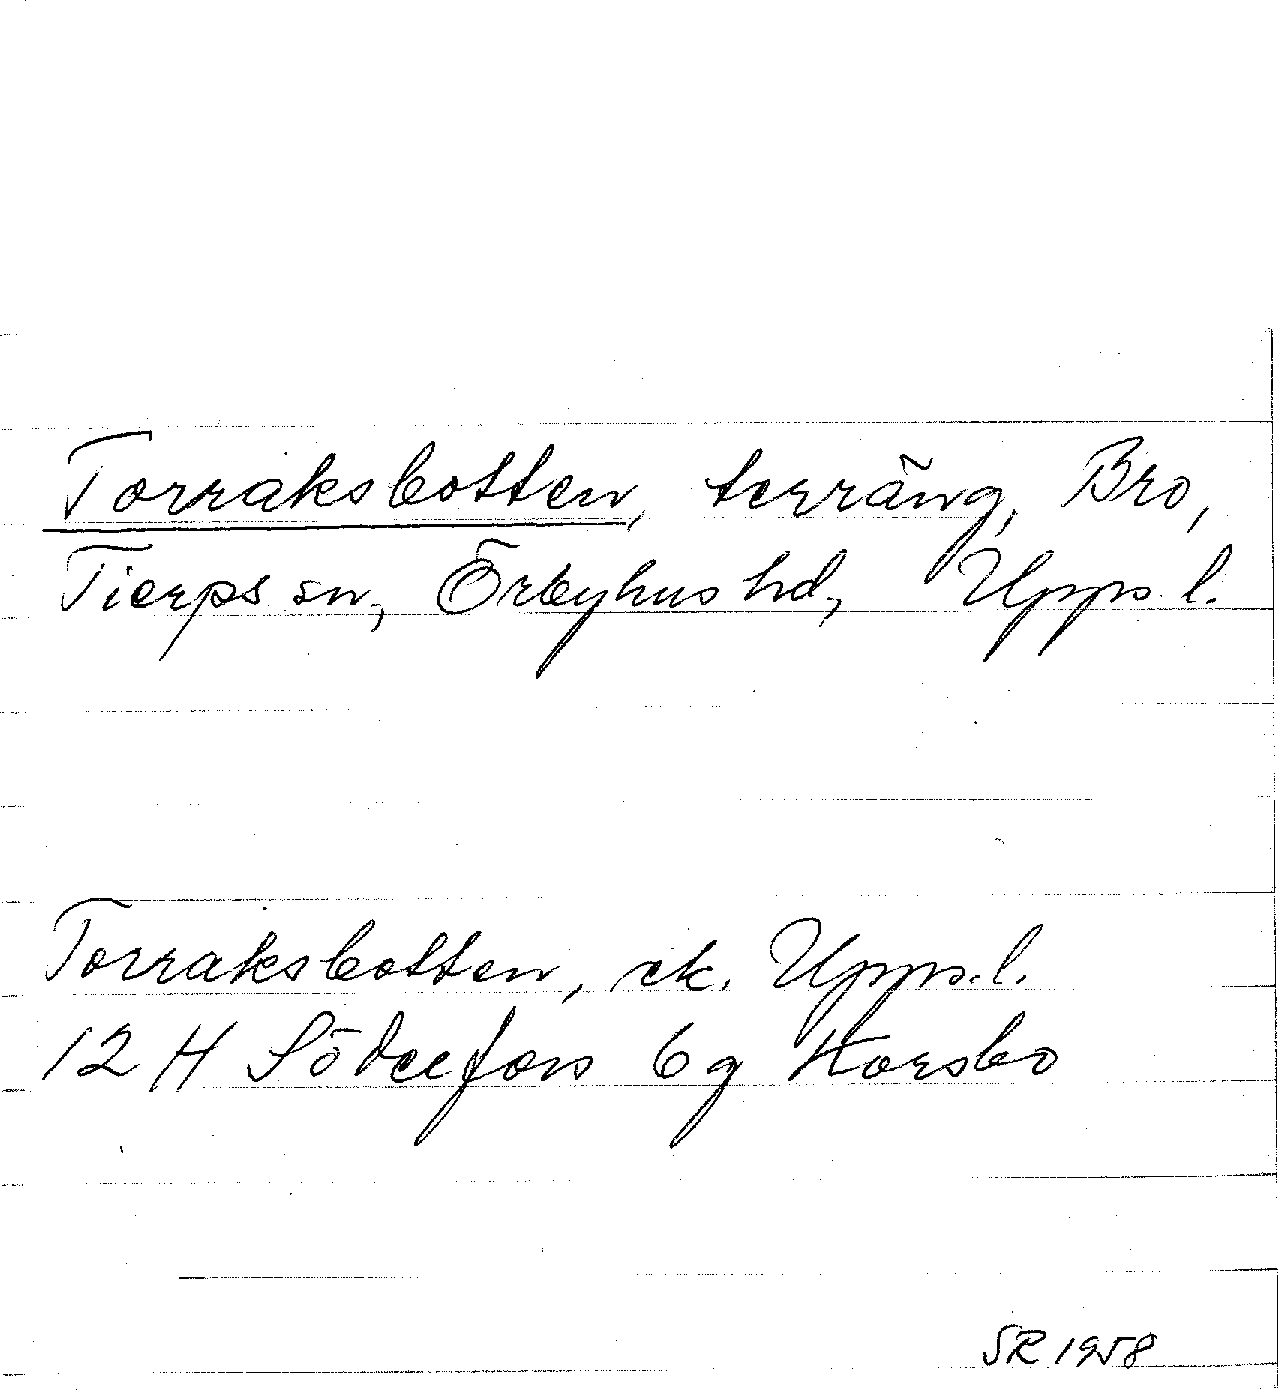 Torraksbotten, terräng, Bro,
Tierps sn, Örbyhus hd, Upps. l.
Torraksbotten, ek. Upps. l.
12 H Söderfors 6 g Karsbo
SR 1958